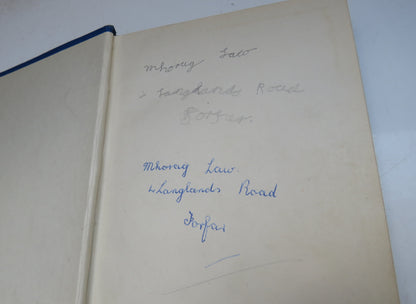 Mhorag Law
2 Langlands Road
Forfar.
Mhorag Law
2 Langlands Road
Forfar